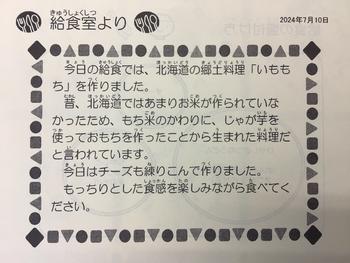 給食室より
2024年7月10日
今日の給食では、北海道の郷土料理「いももち」を作りました。
昔、北海道ではあまりお米が作られていなかったため、もち米のかわりに、じゃが芋を使っておもちを作ったことから生まれた料理だと言われています。
今日はチーズも練りこんで作りました。
もっちりとした食感を楽しみながら食べてください。